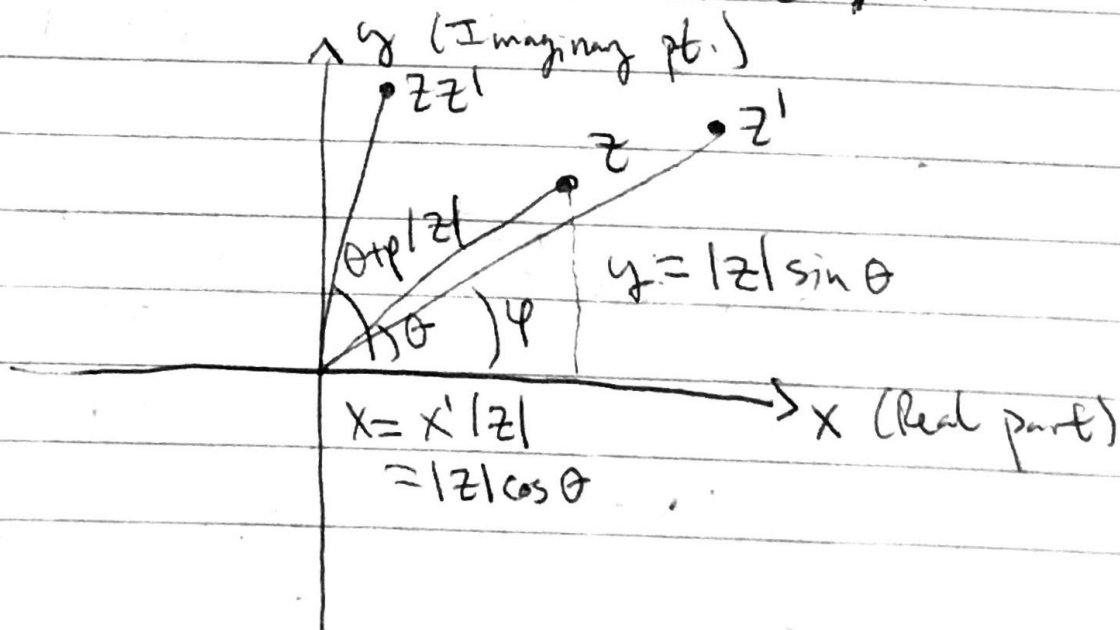 y (Imaginary pt.)
zz'
z'
z
|z|
θ+φ
y = |z| sin θ
θ
φ
x = x'|z|
= |z| cos θ
x (Real part)